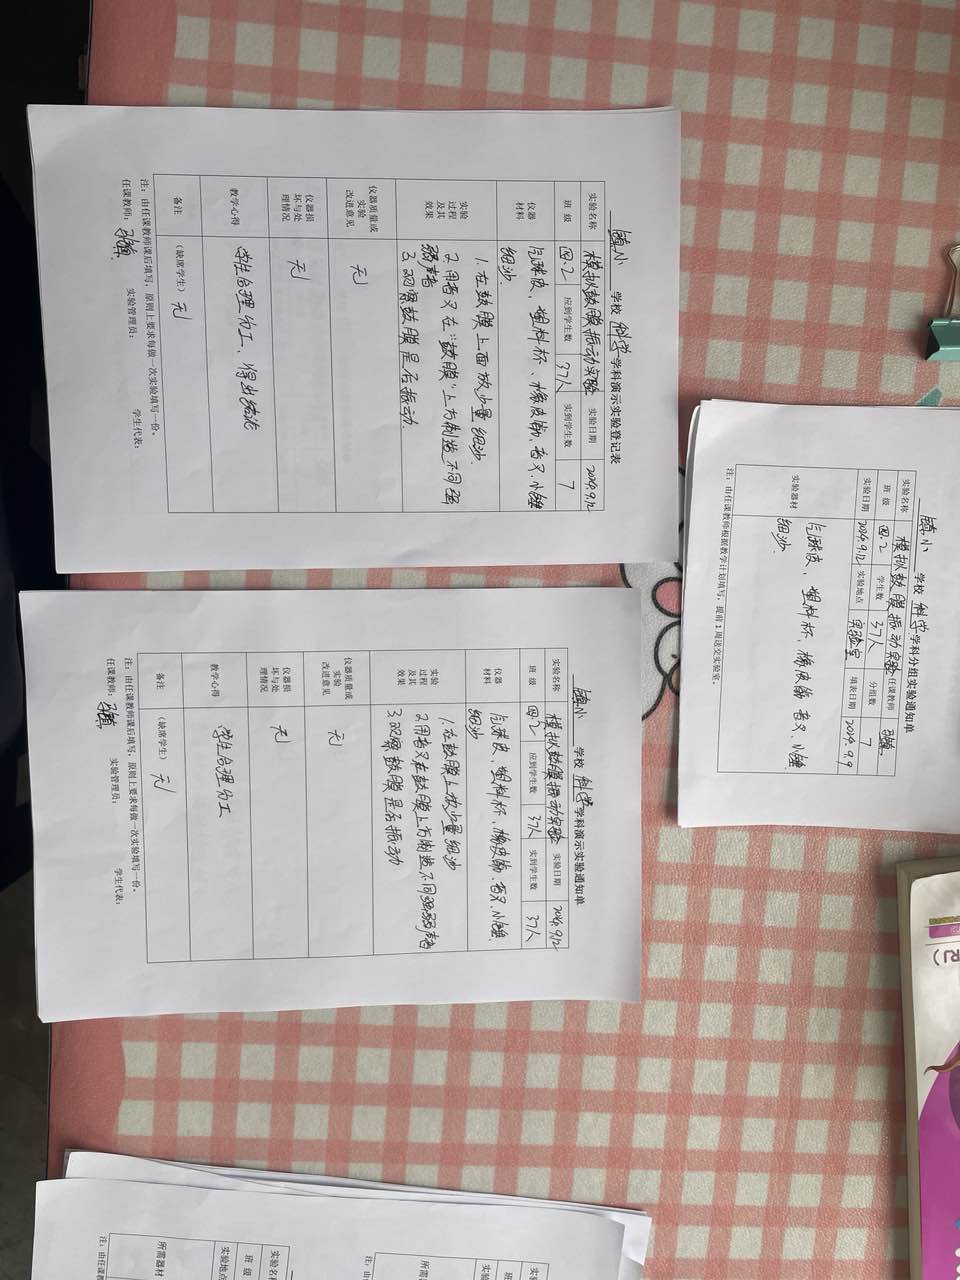 镇小 学校 科学 学科演示实验登记表
实验名称 模拟鼓膜振动实验 实验日期 2024.9.12
班 级 四.2 应到学生数 37人 实到学生数 7
仪器材料 气球皮、塑料杯、橡皮筋、音叉、小锤
细沙.
实验过程及其效果 1. 在鼓膜上面放少量细沙.
2. 用音叉在“鼓膜”上方制造不同强
弱声音
3. 观察鼓膜是否振动.
仪器质量或实验改进意见 无
仪器损坏与处理情况 无
教学心得 学生合理分工、得出结论
备注 (缺席学生) 无
注：由任课教师课后填写，原则上要求每做一次实验填写一份。
任课教师： 实验管理员： 学生代表：
镇小 学校 科学 学科分组实验通知单
实验名称 模拟鼓膜振动实验 任课教师
班 级 四.2 学生数 37人 分组数 7
实验日期 2024.9.12 实验地点 实验室 填表日期 2024.9.9
实验器材 气球皮、塑料杯、橡皮筋 音叉、小锤
细沙.
注：由任课教师根据教学计划填写，提前1周送交实验室。
镇小 学校 科学 学科演示实验通知单
实验名称 模拟鼓膜振动实验 实验日期 2024.9.12
班 级 四2 应到学生数 37人 实到学生数 37人
仪器材料 气球皮、塑料杯、橡皮筋、音叉、小锤.
细沙
实验过程及其效果 1. 在鼓膜上放少量细沙
2. 用音叉在鼓膜上方制造不同强弱声音
3. 观察鼓膜是否振动
仪器质量或实验改进意见 无
仪器损坏与处理情况 无
教学心得 学生合理分工
备注 (缺席学生) 无
注：由任课教师课后填写，原则上要求每做一次实验填写一份。
任课教师： 实验管理员： 学生代表：
RJ）
实验名称
班 级
实验地点
所需器材
注：由任课教
实验
班
实验
所需器
注：由